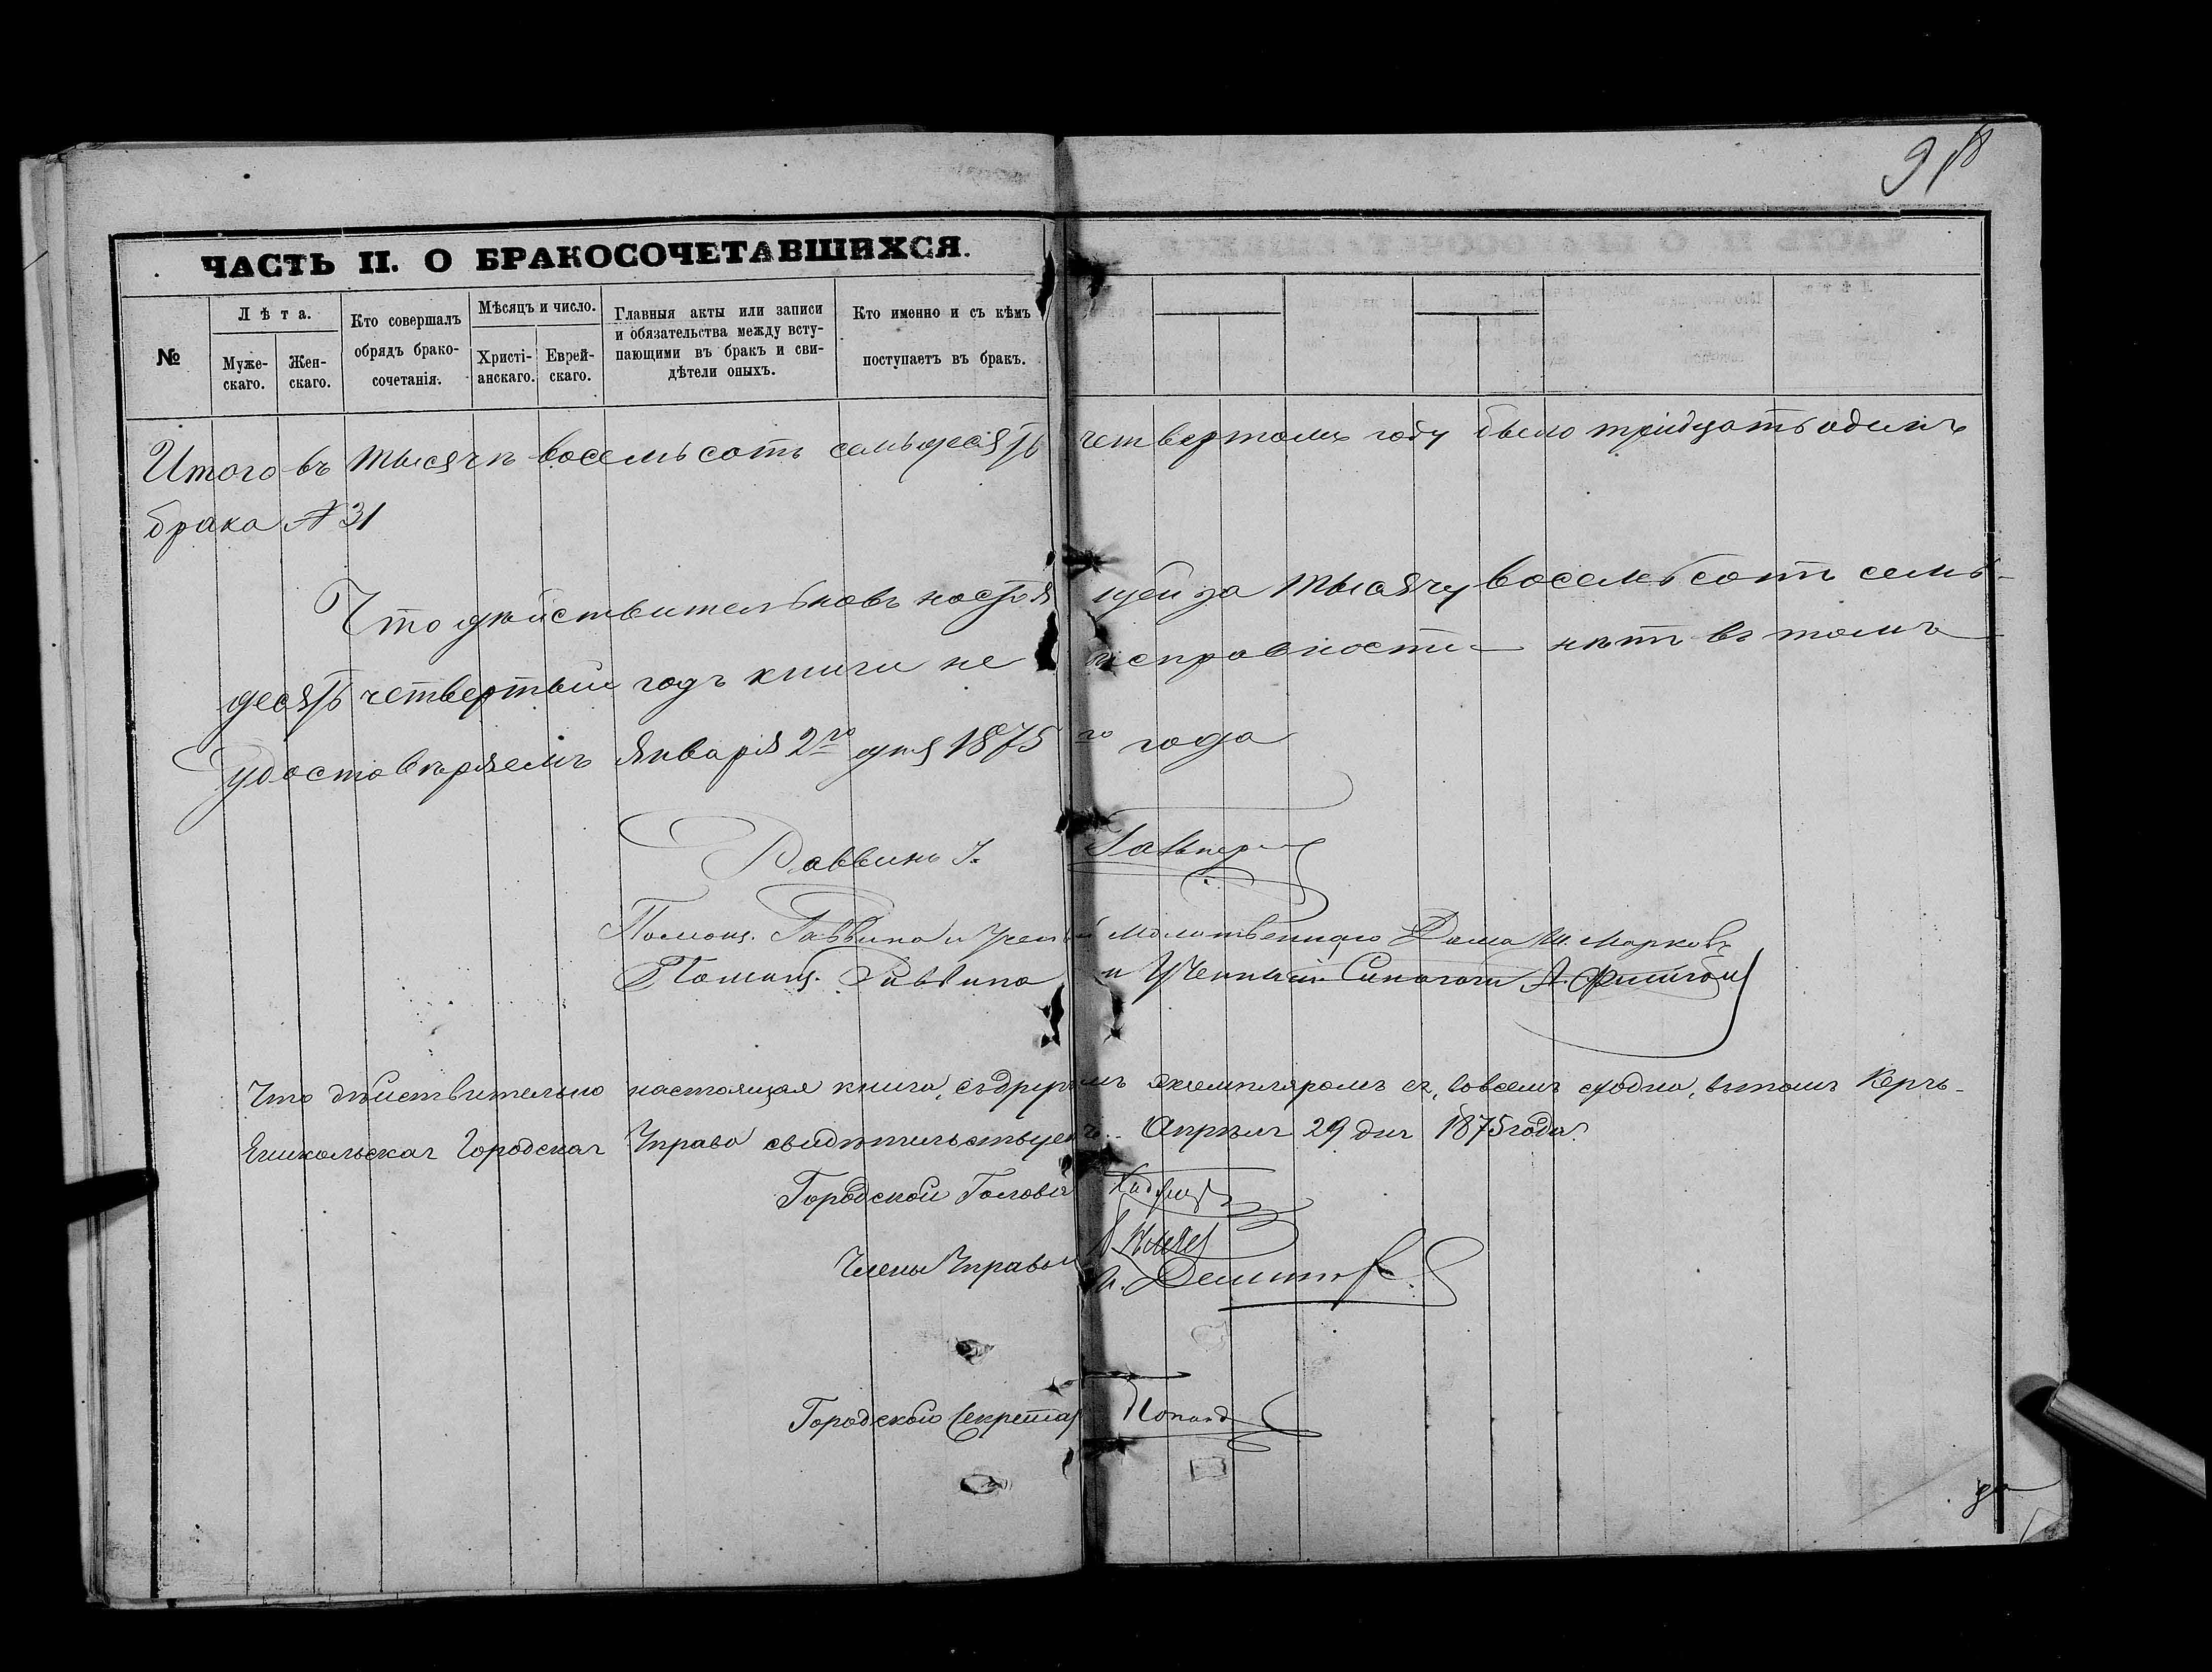 918
ЧАСТЬ II. О БРАКОСОЧЕТАВШИХСЯ.
№
Лѣта.
Муже-
скаго.
Жен-
скаго.
Кто совершалъ
обрядъ брако-
сочетанія.
Мѣсяцъ и число.
Христі-
анскаго.
Еврей-
скаго.
Главныя акты или записи
и обязательства между всту-
пающими въ бракъ и сви-
дѣтели оныхъ.
Кто именно и съ кѣмъ
поступаетъ въ бракъ.
Итого въ тысячѣ восемьсотъ семьдесятъ четвертомъ году было тридцать одинъ
брака № 31
Что дѣйствительно въ настоящей за тысячу восемьсотъ семь-
десятъ четвертый годъ книги не исправности нѣтъ въ томъ
удостовѣряемъ Января 2го дня 1875го года
Раввинъ I. Гальпер
Помощ. Раввина и Молитвеннаго Дома Ш. Марковъ
Помощ. Раввина и Ученный Синагоги
Что дѣйствительно настоящая книга, съ другимъ экземпляромъ ея, совсемъ сходна, въ томъ Керчь-
Еникольская Городская Управа свидѣтельствуетъ. Апрѣля 29 дня 1875 года.
Городской Голова
Члены Управы
Городской Секретарь